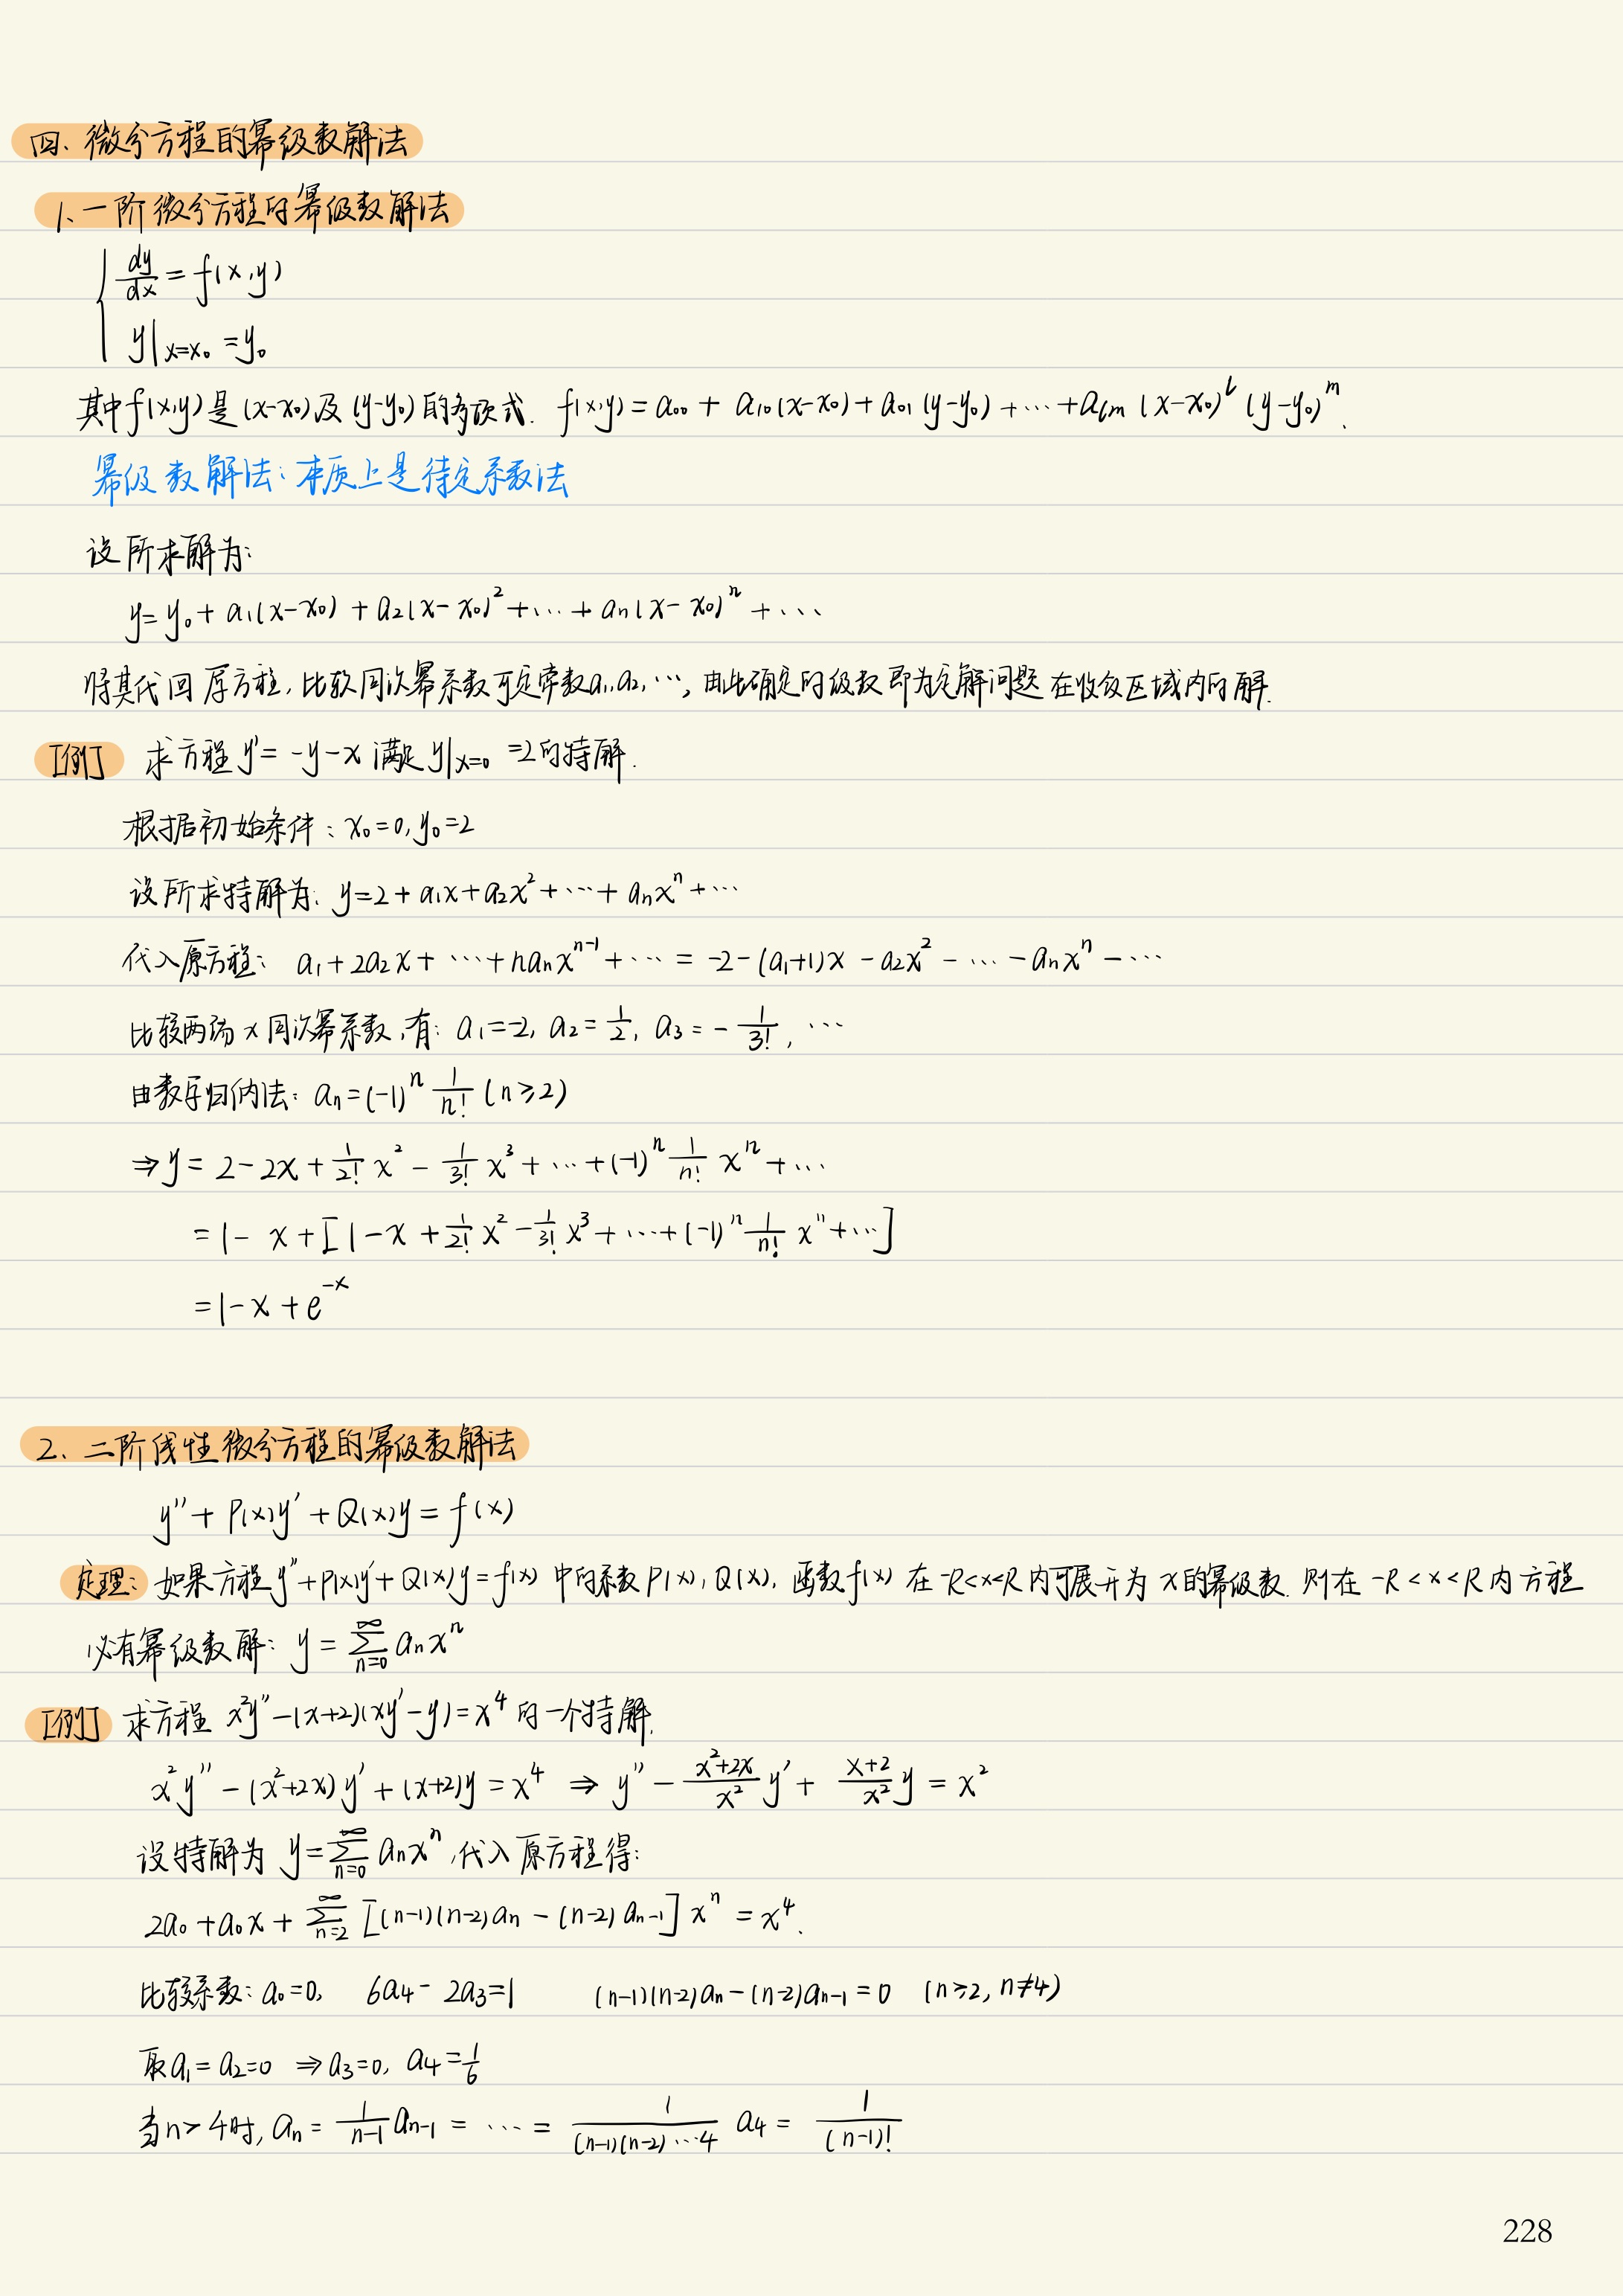 四、微分方程的幂级数解法
1、一阶微分方程的幂级数解法
{ dy/dx = f(x,y)
y|x=x₀ = y₀
其中f(x,y)是(x-x₀)及(y-y₀)的多项式. f(x,y) = a₀₀ + a₁₀(x-x₀) + a₀₁(y-y₀) + ⋯ + aₗₘ(x-x₀)^l (y-y₀)^m.
幂级数解法: 本质上是待定系数法
设所求解为:
y = y₀ + a₁(x-x₀) + a₂(x-x₀)² + ⋯ + aₙ(x-x₀)ⁿ + ⋯
将其代回原方程, 比较同次幂系数可定常数a₁, a₂, ⋯, 由此确定的级数即为定解问题在收敛区域内的解.
[例] 求方程 y' = -y-x 满足 y|x=0 = 2的特解.
根据初始条件: x₀=0, y₀=2
设所求特解为: y = 2 + a₁x + a₂x² + ⋯ + aₙxⁿ + ⋯
代入原方程: a₁ + 2a₂x + ⋯ + naₙxⁿ⁻¹ + ⋯ = -2-(a₁+1)x - a₂x² - ⋯ - aₙxⁿ - ⋯
比较两端 x 同次幂系数, 有: a₁=-2, a₂=1/2, a₃=-1/3!, ⋯
由数学归纳法: aₙ = (-1)ⁿ 1/n! (n≥2)
⇒ y = 2-2x + 1/2! x² - 1/3! x³ + ⋯ + (-1)ⁿ 1/n! xⁿ + ⋯
= 1 - x + [1-x + 1/2! x² - 1/3! x³ + ⋯ + (-1)ⁿ 1/n! xⁿ + ⋯]
= 1-x + e⁻ˣ
2、二阶线性微分方程的幂级数解法
y'' + P(x)y' + Q(x)y = f(x)
定理: 如果方程 y''+P(x)y'+Q(x)y=f(x) 中的系数 P(x), Q(x), 函数f(x) 在 -R<x<R 内可展开为 x 的幂级数. 则在 -R<x<R 内方程
必有幂级数解: y = ∑(n=0→∞) aₙxⁿ
[例] 求方程 x²y''-(x+2)(xy'-y)=x⁴ 的一个特解.
x²y'' - (x²+2x)y' + (x+2)y = x⁴ ⇒ y'' - (x²+2x)/x² y' + (x+2)/x² y = x²
设特解为 y = ∑(n=0→∞) aₙxⁿ, 代入原方程得:
2a₀ + a₀x + ∑(n=2→∞) [(n-1)(n-2)aₙ - (n-2)aₙ₋₁] xⁿ = x⁴.
比较系数: a₀=0, 6a₄ - 2a₃=1 (n-1)(n-2)aₙ - (n-2)aₙ₋₁ = 0 (n≥2, n≠4)
取a₁=a₂=0 ⇒ a₃=0, a₄=1/6
当n>4时, aₙ = 1/(n-1) aₙ₋₁ = ⋯ = 1/((n-1)(n-2)⋯4) a₄ = 1/(n-1)!
228